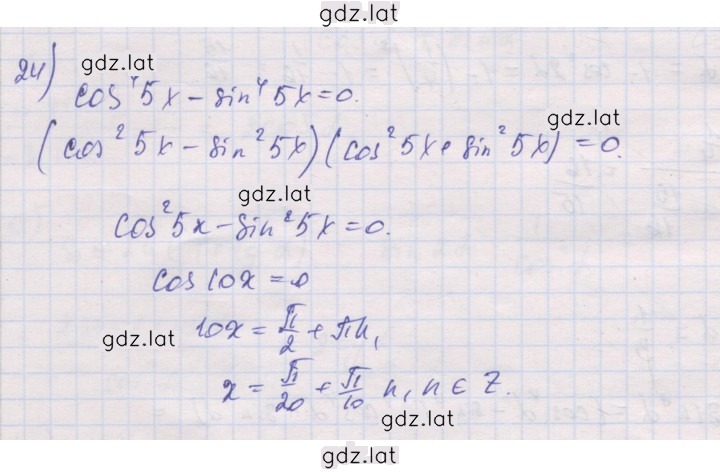 gdz.lat
24) gdz.lat
cos⁴5x - sin⁴5x = 0.
gdz.lat
(cos²5x - sin²5x)(cos²5x + sin²5x) = 0.
gdz.lat
cos²5x - sin²5x = 0.
cos10x = 0
gdz.lat
10x = π/2 + πn,
x = π/20 + π/10 n, n ∈ Z.
gdz.lat
gdz.lat